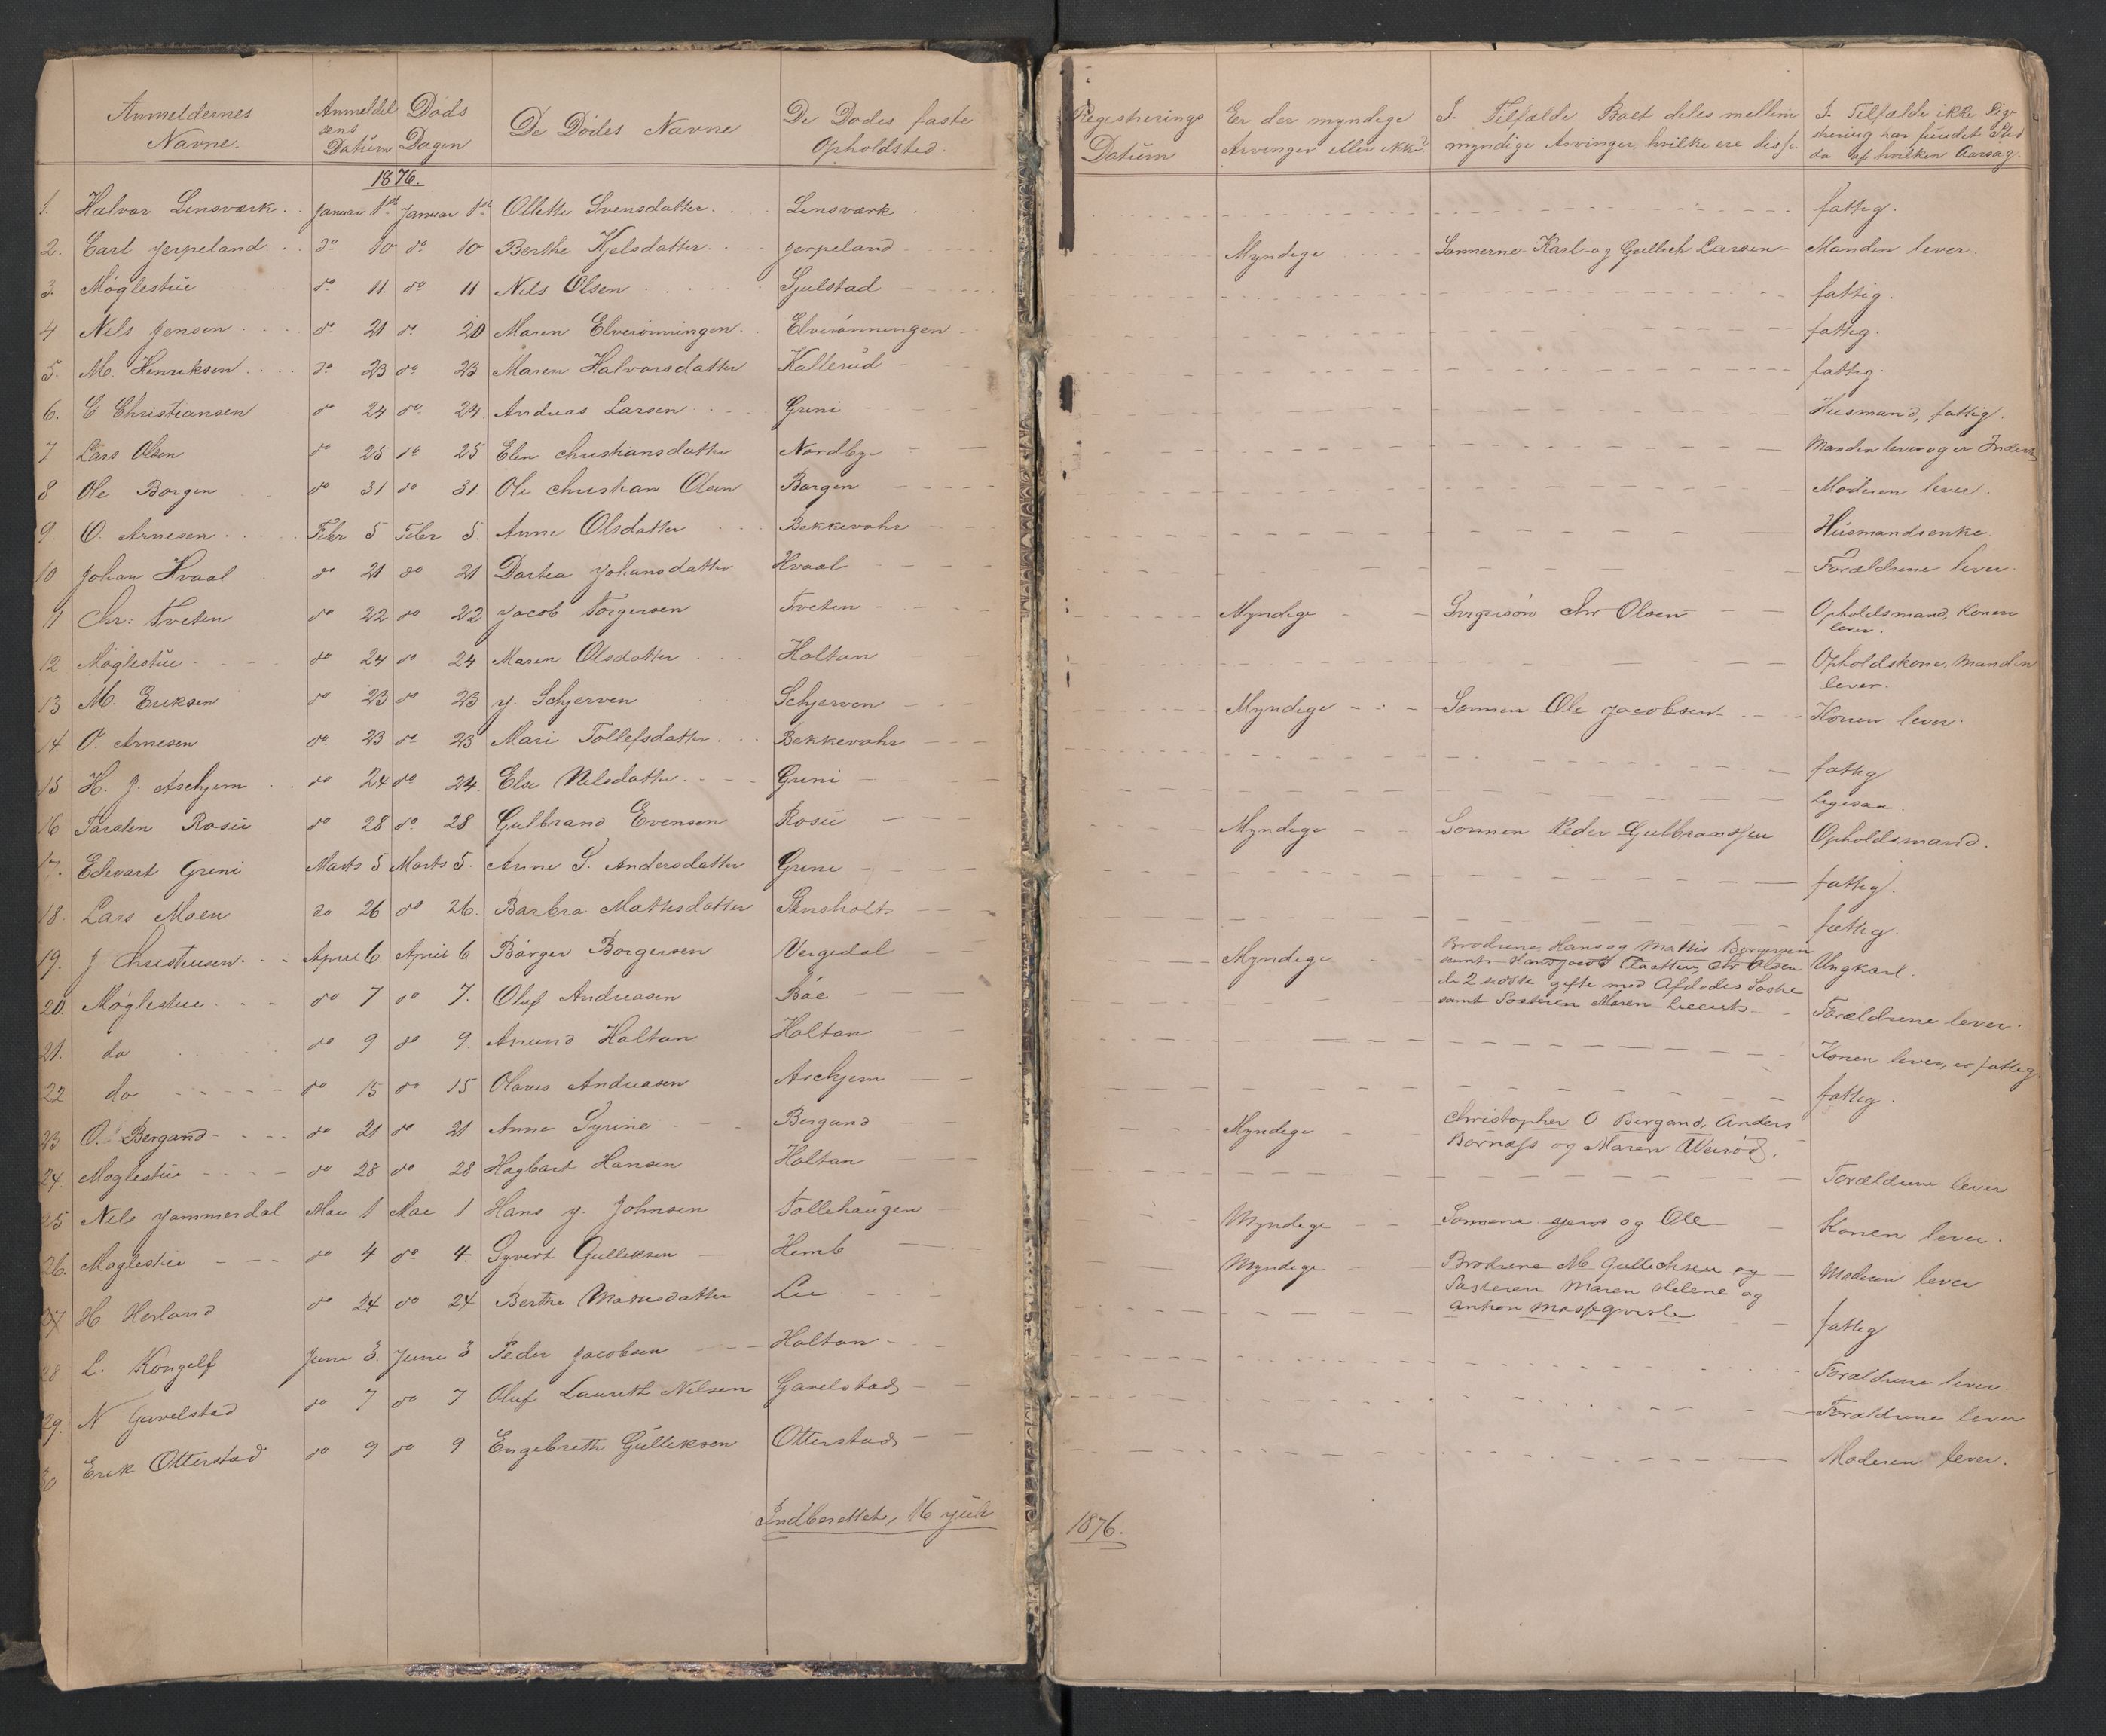 Anmeldernes Navne.
Anmeldelsens Datum
Døds Dagen
De Dødes Navne
De Dødes faste Opholdsted.
1876.
1. Halvor Linsværk. Januar 1ste Januar 1ste Ollette Svensdatter. Linsværk
2. Carl Jerpeland do 10 do 10 Berthe Kjelsdatter. Jerpeland
3. Møglestue do 11 do 11 Nils Olsen Gjulstad
4 Nils Jensen do 21 do 20 Maren Elverønningen. Elverønningen
5. M. Henriksen do 23 do 23 Maren Halvorsdatter Kallerud
6. C Christiansen do 24 do 24 Andreas Larsen Greni
7 Lars Olsen do 25 do 25 Elen Christiansdatter Nordbye
8 Ole Borgen do 31 do 31. Ole Christian Olsen Borgen
9 O. Arnesen Febr 5 Febr 5. Anne Olsdatter Bekkevahr
10 Johan Hvaal do 21 do 21 Dortea Johansdatter Hvaal
11 Chr: Tveten do 22 do 22 Jacob Torgersen Tveten
12 Møglestue do 24 do 24 Maren Olsdatter Holtan
13 M. Eriksen do 23 do 23 J. Schjerven Schjerven
14. O. Arnesen do 23 do 23 Mari Tollefsdatter Bekkevahr
15 H. J. Aschjem do 24 do 24. Else Nilsdatter Greni
16 Torsten Rosie do 28 do 28 Gulbrand Evensen Rosie
17. Edevart Greni Marts 5 Marts 5. Anne S. Andersdatter Greni
18. Lars Moen do 26 do 26. Barbra Mattisdatter
19. J Christensen. April 6 April 6 Børger Borgersen Vergedal
20. Møglestue do 7 do 7. Oluf Andreasen Bøe
21. do do 9 do 9. Amund Holtan Holtan
22 do do 15 do 15 Olaves Andreasen Aschjem
23 O. Bergand do 21 do 21 Anne Syrine Bergand
24. Møglestue do 28 do 28 Hagbart Hansen Holtan
25 Nils Jammerdal Mai 1 Mai 1 Hans J. Johnsen Tollehaugen
26. Møglestue do 4 do 4. Syvert Gulleksen Hemb
27 H Herland do 24 do 24 Berthe Mattisdatter Lie
28 L. Kongelf Juni 3. Juni 3 Peder Jacobsen Holtan
29. N Gavelstad do 7 do 7 Oluf Lauritz Nilsen Gavelstad
30 Erik Otterstad do 9 do 9 Engebreth Gulleksen Otterstad
Indberettet, 16 Juli
Registrerings Datum
Er der myndige Arvinger eller ikke?
I Tilfælde Boet deles mellem myndige Arvinger, hvilke ere disse.
I Tilfælde ikke Registrering har fundet Sted da af hvilken Aarsag.
fattig.
Myndige Sønnerne Karl og Gullich Larsen Manden lever.
fattig.
fattig.
fattig.
Husmand, fattig.
Manden lever og er Inderst
Moderen lever.
Husmandsenke.
Forældrene lever.
Myndige Chr Olsen Opholdsmand, Konen lever.
Opholdskone, Manden lever.
Myndige Sønnen Ole Jacobsen Konen lever.
fattig
Legesaa.
Myndige Sønnen Peder Gulbrandsen Opholdsmand.
fattig.
fattig.
Myndige Brødrene Hans og Mattis Borgersen
samt Hans Jacob Chr Olsen Ungkarl.
de 2 sidste gifte med Afdødes Søstre
samt Søsteren Maren
Forældrene lever.
Konen lever, er fattig.
fattig.
Myndige Christopher O Bergand, Anders
Bornæss og Maren
Forældrene lever
Myndige Sønnerne Jens og Ole Konen lever.
Myndige Brødrene M. Gullichsen og Moderen lever
Søsteren Maren Helene og
Anton
fattig
Forældrene lever.
Forældrene lever
Moderen lever.
1876.